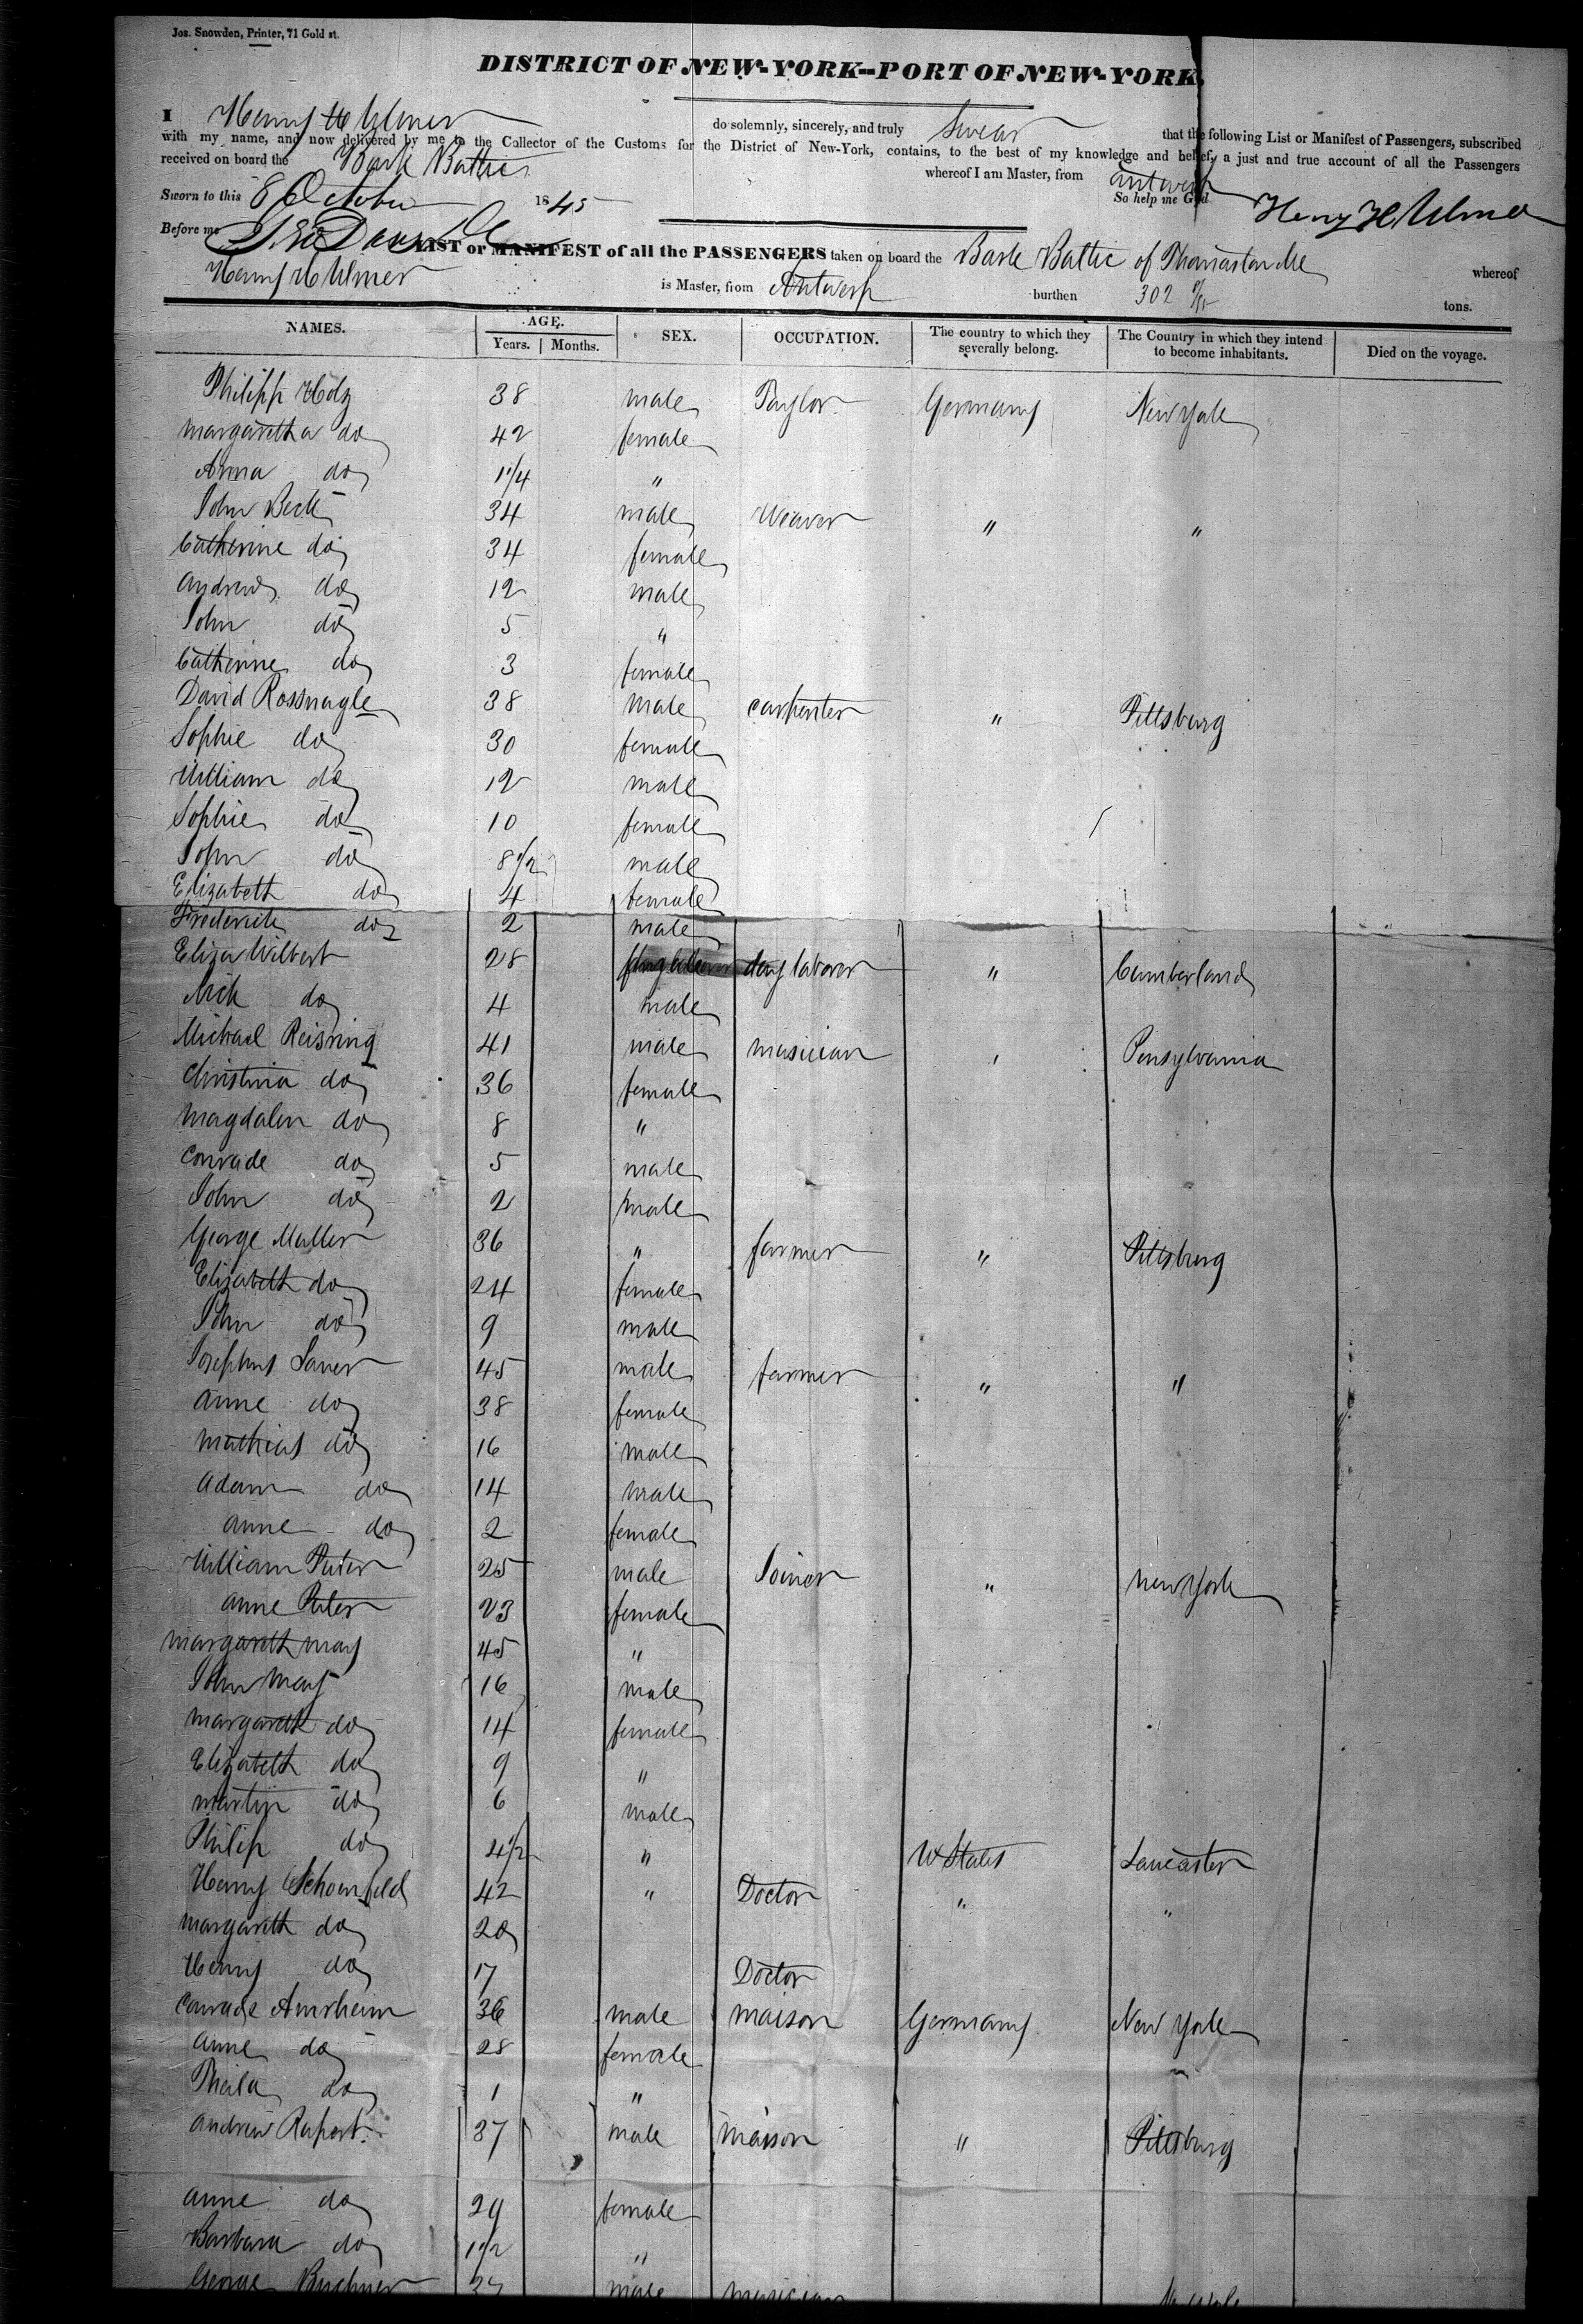 Jos. Snowden, Printer, 71 Gold st.
DISTRICT OF NEW-YORK--PORT OF NEW-YORK,
I Henry H Ulmer do solemnly, sincerely, and truly swear that the following List or Manifest of Passengers, subscribed
with my name, and now delivered by me to the Collector of the Customs for the District of New-York, contains, to the best of my knowledge and belief, a just and true account of all the Passengers
received on board the Bark Baltic whereof I am Master, from Antwerp
Sworn to this 8 October 1845 So help me God.
Henry H Ulmer
Before me
LIST or MANIFEST of all the PASSENGERS taken on board the Bark Baltic of Thomaston Me whereof
Henry H Ulmer is Master, from Antwerp burthen 302 tons.
NAMES. AGE. Years. Months. SEX. OCCUPATION. The country to which they severally belong. The Country in which they intend to become inhabitants. Died on the voyage.
Philipp Hotz 38 male Taylor Germany New York
Margaretha do 42 female
Anna do 1 1/4 "
John Beck 34 male Weaver " "
Catherine do 34 female
Andrew do 12 male
John do 5 "
Catherine do 3 female
David Rossnagle 38 male carpenter " Pittsburg
Sophie do 30 female
William do 12 male
Sophie do 10 female
John do 8 1/2 male
Elizabeth do 4 female
Frederick do 2 male
Eliza Wilbert 28 day laborer " Cumberland
Nick do 4 male
Michael Reisring 41 male musician " Pensylvania
Christina do 36 female
Magdalen do 8 "
Conrade do 5 male
John do 2 male
George Muller 36 " farmer " Pittsburg
Elizabeth do 24 female
John do 9 male
Josephus Saner 45 male farmer " "
Anne do 38 female
Mathias do 16 male
Adam do 14 male
Anne do 2 female
William Peter 25 male Joiner " New York
Anne Peter 23 female
Margareth May 45 "
John May 16 male
Margareth do 14 female
Elizabeth do 9 "
Martin do 6 male
Philip do 4 1/2 " U States Lancaster
Henry Schoenfeld 42 " Doctor " "
Margareth do 20
Henry do 17 Doctor
Conrade Amrheim 36 male maison Germany New York
Anne do 28 female
do 1 "
Andrew Rupert 37 male maison " Pittsburg
Anne do 29 female
Barbara do 1 1/2 "
George Buchner male musician